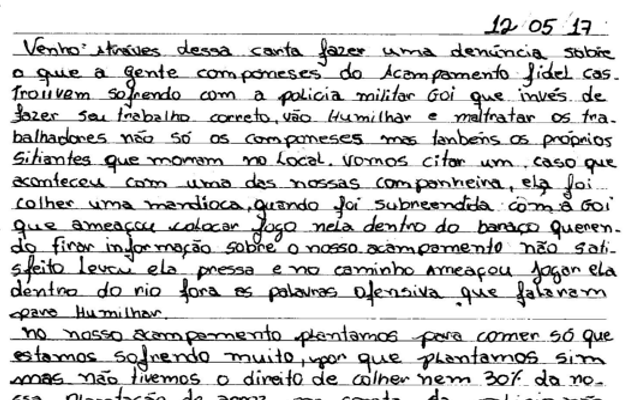 12 05 17
Venho através dessa carta fazer uma denúncia sobre
o que a gente componeses do Acampamento fidel cas-
tro uvem sofrendo com a policia militar Goi que invés de
fazer seu trabalho correto, vão Humilhar e maltratar os tra-
balhadores não só os componeses mas tanbéns os próprios
sitiantes que moram no Local. vomos citar um caso que
aconteceu com uma das nossas companheira, ela foi
colher uma mandioca, quando foi subreendida com a Goi
que ameaçou colocar fogo nela dentro do baraço queren-
do tirar informação sobre o nosso acampamento não sati-
sfeito Levou ela pressa e no caminho Ameaçou jogar ela
dentro do rio fora as palavras Ofensiva que falaram
para Humilhar.
no nosso acampamento plantamos para comer só que
estamos sofrendo muito, por que plantamos sim
mas não tivemos o direito de colher nem 30% da no-
ssa